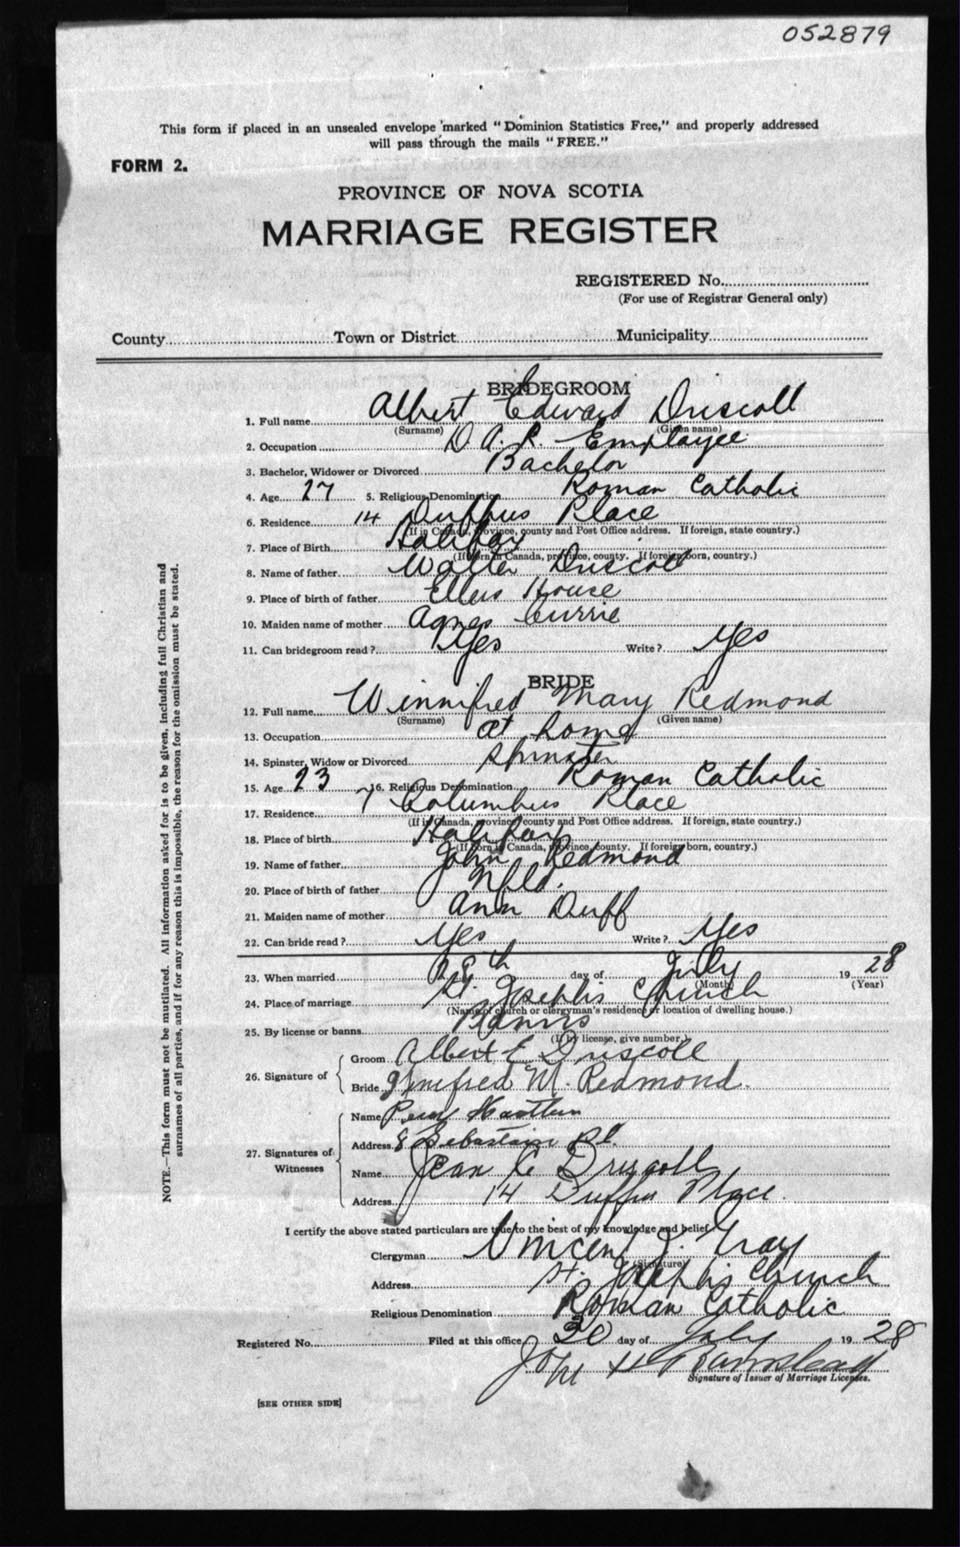 052879
This form if placed in an unsealed envelope marked "Dominion Statistics Free," and properly addressed
will pass through the mails "FREE."
FORM 2.
PROVINCE OF NOVA SCOTIA
MARRIAGE REGISTER
REGISTERED No.
(For use of Registrar General only)
County Town or District Municipality
BRIDEGROOM
1. Full name Albert Edward Driscoll
(Surname) (Given name)
2. Occupation D.A.R. Employee
3. Bachelor, Widower or Divorced Bachelor
4. Age 27 5. Religious Denomination Roman Catholic
6. Residence 14 Duffus Place
(If in Canada, province, county and Post Office address. If foreign, state country.)
7. Place of Birth Halifax
(If born in Canada, province, county. If foreign born, country.)
8. Name of father Walter Driscoll
9. Place of birth of father Ellus House
10. Maiden name of mother Agnes Currie
11. Can bridegroom read? Yes Write? Yes
BRIDE
12. Full name Winnifred Mary Redmond
(Surname) (Given name)
13. Occupation at home
14. Spinster, Widow or Divorced Spinster
15. Age 23 16. Religious Denomination Roman Catholic
17. Residence 7 Columbus Place
(If in Canada, province, county and Post Office address. If foreign, state country.)
18. Place of birth Halifax
(If born in Canada, province, county. If foreign born, country.)
19. Name of father John Redmond
20. Place of birth of father Nfld.
21. Maiden name of mother Ann Duff
22. Can bride read? Yes Write? Yes
23. When married 28th day of July 1928
(Month) (Year)
24. Place of marriage St. Joseph's Church
(Name of church or clergyman's residence or location of dwelling house.)
25. By license or banns Banns
(If by license, give number.)
26. Signature of
Groom Albert E Driscoll
Bride Winifred M. Redmond.
27. Signatures of Witnesses
Name Percy
Address 8 Sebastian Pl.
Name Jean C Driscoll
Address 14 Duffus Place.
I certify the above stated particulars are true to the best of my knowledge and belief.
Clergyman Vincent J. Gray
(Signature)
Address St. Joseph's Church
Religious Denomination Roman Catholic
Registered No. Filed at this office 30 day of July 1928
John
Signature of Issuer of Marriage Licenses.
[SEE OTHER SIDE]
NOTE.—This form must not be mutilated. All information asked for is to be given, including full Christian and
surnames of all parties, and if for any reason this is impossible, the reason for the omission must be stated.